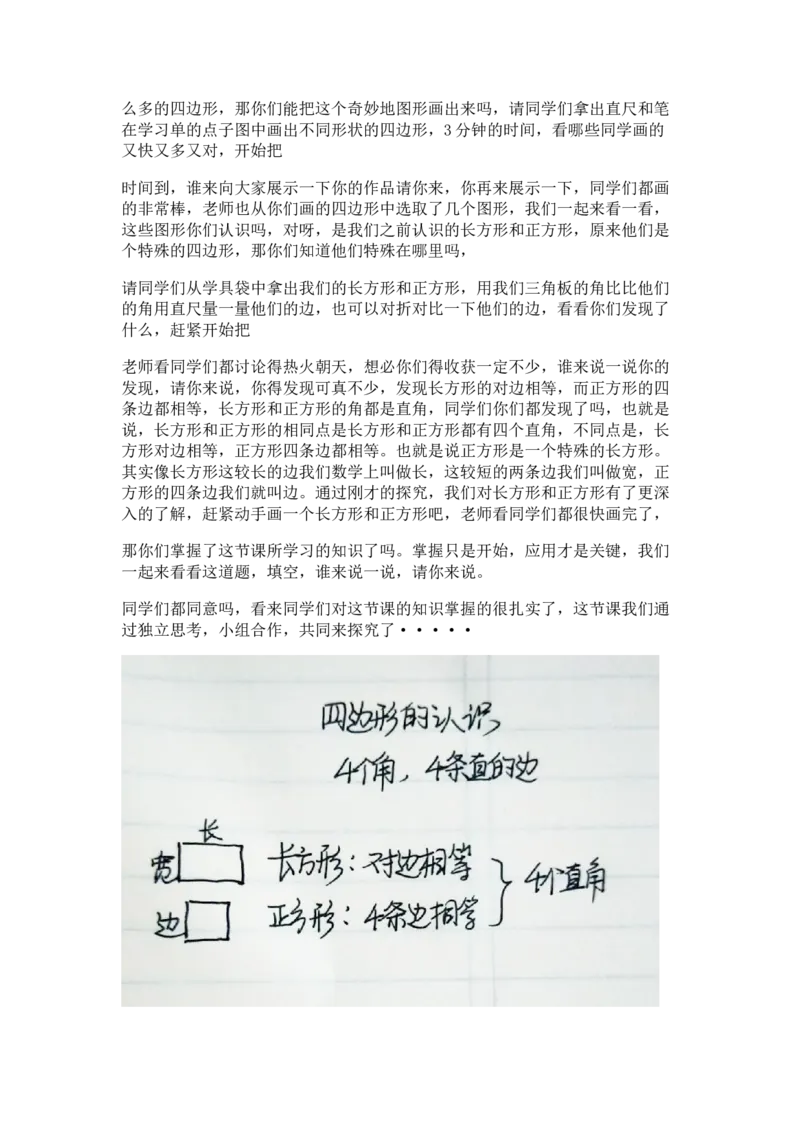 么多的四边形，那你们能把这个奇妙地图形画出来吗，请同学们拿出直尺和笔
在学习单的点子图中画出不同形状的四边形，3 分钟的时间，看哪些同学画的
又快又多又对，开始把
时间到，谁来向大家展示一下你的作品请你来，你再来展示一下，同学们都画
的非常棒，老师也从你们画的四边形中选取了几个图形，我们一起来看一看，
这些图形你们认识吗，对呀，是我们之前认识的长方形和正方形，原来他们是
个特殊的四边形，那你们知道他们特殊在哪里吗，
请同学们从学具袋中拿出我们的长方形和正方形，用我们三角板的角比比他们
的角用直尺量一量他们的边，也可以对折对比一下他们的边，看看你们发现了
什么，赶紧开始把
老师看同学们都讨论得热火朝天，想必你们得收获一定不少，谁来说一说你的
发现，请你来说，你得发现可真不少，发现长方形的对边相等，而正方形的四
条边都相等，长方形和正方形的角都是直角，同学们你们都发现了吗，也就是
说，长方形和正方形的相同点是长方形和正方形都有四个直角，不同点是，长
方形对边相等，正方形四条边都相等。也就是说正方形是一个特殊的长方形。
其实像长方形这较长的边我们数学上叫做长，这较短的两条边我们叫做宽，正
方形的四条边我们就叫边。通过刚才的探究，我们对长方形和正方形有了更深
入的了解，赶紧动手画一个长方形和正方形吧，老师看同学们都很快画完了，
那你们掌握了这节课所学习的知识了吗。掌握只是开始，应用才是关键，我们
一起来看看这道题，填空，谁来说一说，请你来说。
同学们都同意吗，看来同学们对这节课的知识掌握的很扎实了，这节课我们通
过独立思考，小组合作，共同来探究了·····
四边形的认识
4个角，4条直的边
长
宽 长方形：对边相等
4个直角
边 正方形：4条边相等